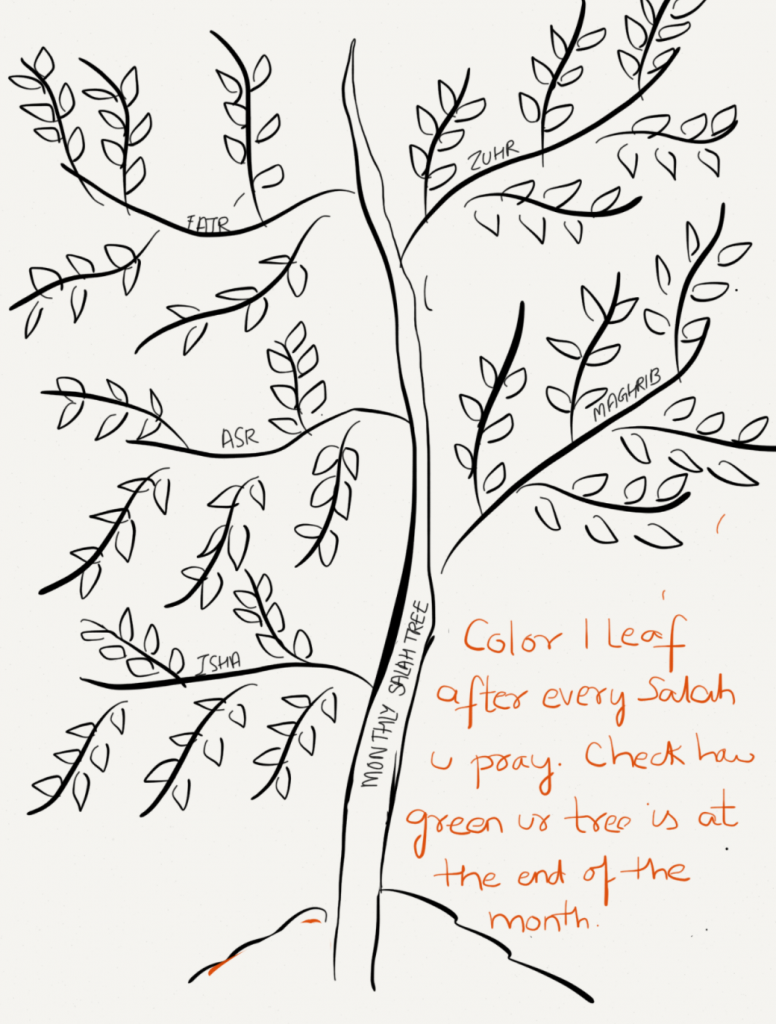 ZUHR
FAJR
MAGHRIB
ASR
ISHA
MONTHLY SALAH TREE
Color 1 Leaf
after every Salah
u pray. Check how
green ur tree is at
the end of the
month.